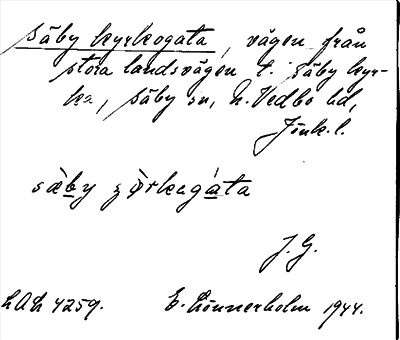 Säby kyrkogata, vägen från
stora landsvägen t. Säby kyr-
ka, Säby sn, N. Vedbo hd,
Jönk. l.
säby
J. G.
LAL 4259. E. Lönnerholm 1944.